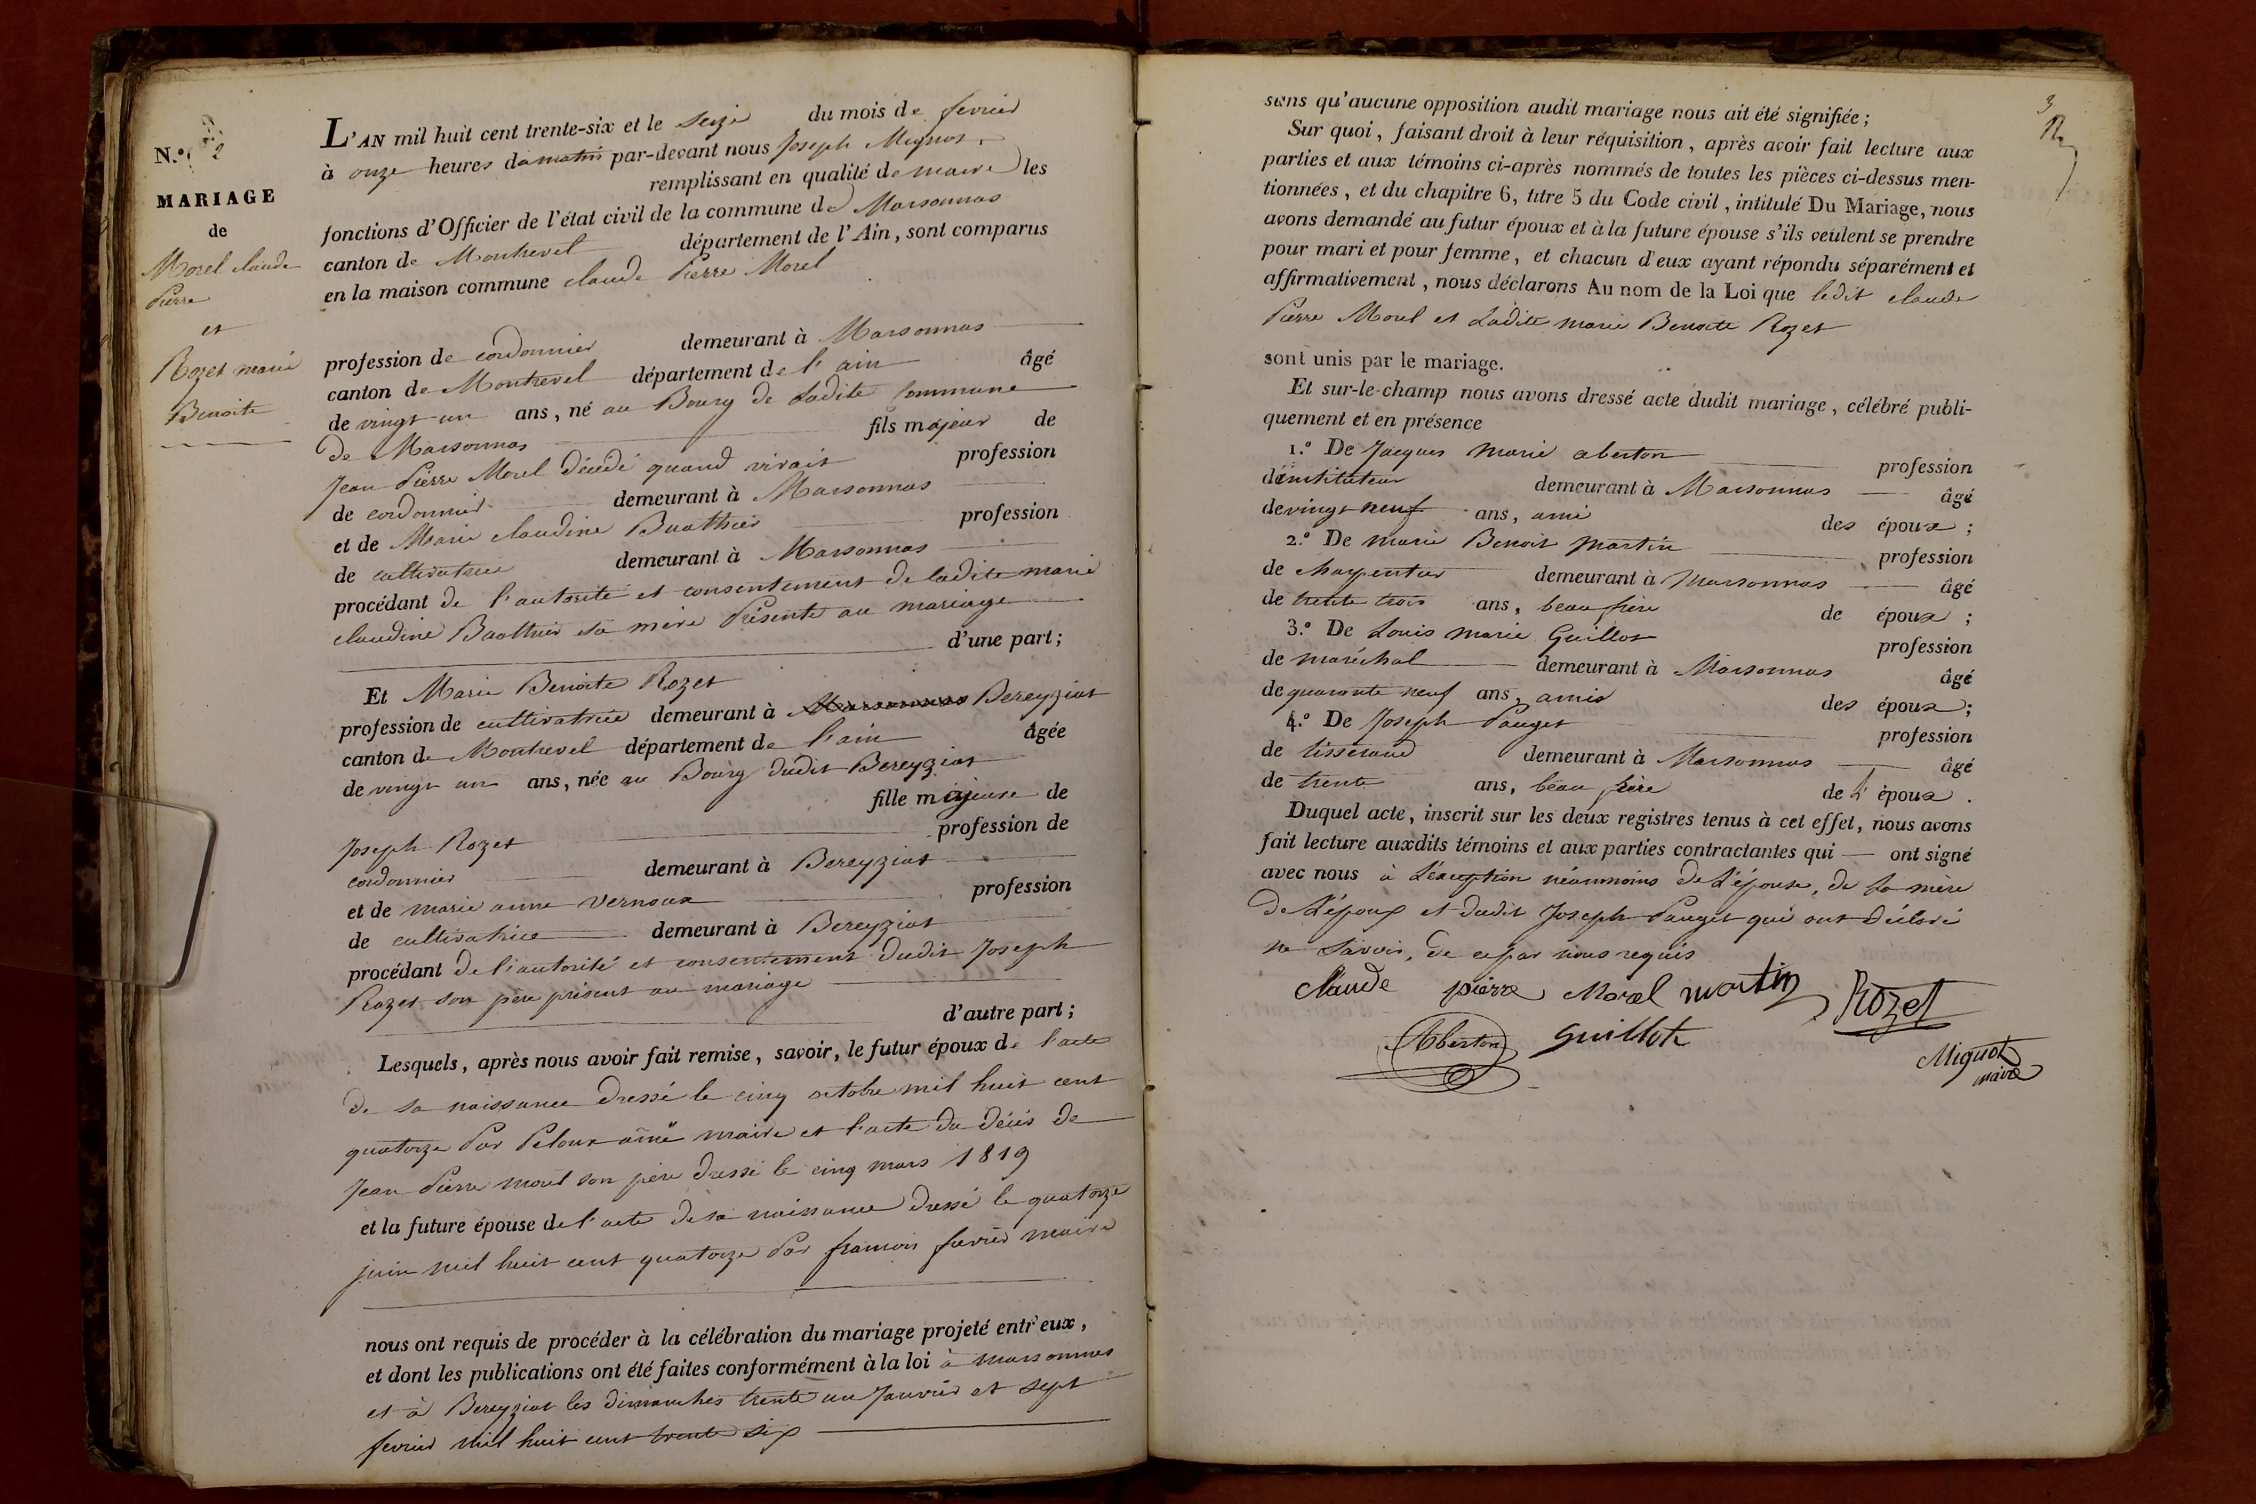 N.º 2
MARIAGE
de
Morel claude
Pierre
et
Rozet marie
Benoite
L'AN mil huit cent trente-six et le seize du mois de fevrier
à onze heures du matin par-devant nous Joseph Miguot,
remplissant en qualité de maire les
fonctions d'Officier de l'état civil de la commune de Marsonnas
canton de Montrevel département de l'Ain, sont comparus
en la maison commune claude Pierre Morel
profession de cordonnier demeurant à Marsonnas
canton de Montrevel département de l'ain âgé
de vingt un ans, né au Bourg de Ladite Commune
de Marsonnas fils majeur de
Jean Pierre Morel décédé quand vivait profession
de cordonnier demeurant à Marsonnas
et de Marie claudine Buathier profession
de cultivatrice demeurant à Marsonnas
procédant de l'autorité et consentement de ladite marie
claudine Buathier sa mère Présente au mariage
d'une part;
Et Marie Benoite Rozet
profession de cultivatrice demeurant à Marsonnas Bereyziat
canton de Montrevel département de l'ain âgée
de vingt un ans, née au Bourg dudit Bereyziat
fille majeure de
Joseph Rozet profession de
cordonnier demeurant à Bereyziat
et de marie anne Vernoux profession
de cultivatrice demeurant à Bereyziat
procédant de l'autorité et consentement dudit Joseph
Rozet son père présent au mariage
d'autre part;
Lesquels, après nous avoir fait remise, savoir, le futur époux de l'acte
de sa naissance dressé le cinq octobre mil huit cent
quatorze Par Peloux ainé maire et l'acte du décès de
Jean Pierre morel son père dressé le cinq mars 1819
et la future épouse de l'acte de sa naissance dressé le quatorze
juin mil huit cent quatorze Par francois fevrier maire
nous ont requis de procéder à la célébration du mariage projeté entr'eux,
et dont les publications ont été faites conformément à la loi à marsonnas
et à Bereyziat les dimanches trente un Janvier et sept
fevrier mil huit cent trente six
3
sans qu'aucune opposition audit mariage nous ait été signifiée;
Sur quoi, faisant droit à leur réquisition, après avoir fait lecture aux
parties et aux témoins ci-après nommés de toutes les pièces ci-dessus men-
tionnées, et du chapitre 6, titre 5 du Code civil, intitulé Du Mariage, nous
avons demandé au futur époux et à la future épouse s'ils veulent se prendre
pour mari et pour femme, et chacun d'eux ayant répondu séparément et
affirmativement, nous déclarons Au nom de la Loi que ledit claude
Pierre Morel et Ladite marie Benoite Rozet
sont unis par le mariage.
Et sur-le-champ nous avons dressé acte dudit mariage, célébré publi-
quement et en présence
1.º De Jacques marie aberton profession
d'instituteur demeurant à Marsonnas âgé
de vingt neuf ans, ami des époux;
2.º De marie Benoit martin profession
de charpentier demeurant à Marsonnas âgé
de trente trois ans, beau frère de époux;
3.º De Louis marie Guillot profession
de maréchal demeurant à Marsonnas âgé
de quarante neuf ans, amis des époux;
4.º De Joseph Pauget profession
de tisserand demeurant à Marsonnas âgé
de trente ans, beau frère de l' époux.
Duquel acte, inscrit sur les deux registres tenus à cet effet, nous avons
fait lecture auxdits témoins et aux parties contractantes qui ont signé
avec nous à L'exception néanmoins de L'épouse, de la mère
de L'époux et dudit Joseph Pauget qui ont déclaré
ne savoir, de ce par nous requis
claude pierre Morel martin Rozet
Aberton Guillot
Miguot
maire